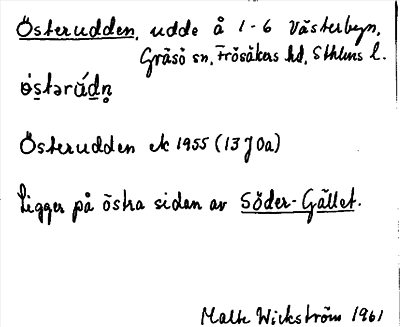 Österudden, udde å 1-6 Västerbyn,
Gräsö sn, Frösåkers hd, Sthlms l.
Österudden ek 1955 (13J0a)
Ligger på östra sidan av Söder-Gället.
Malte Wickström 1961